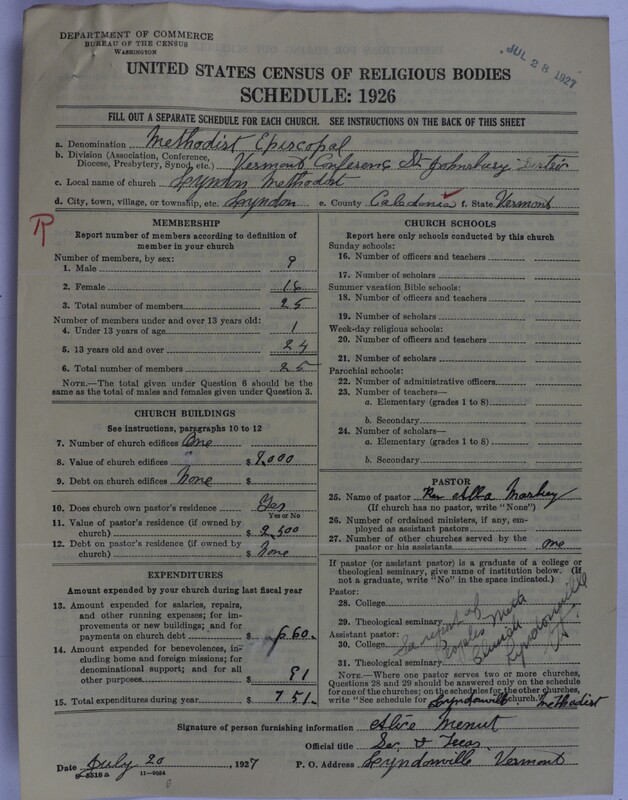 DEPARTMENT OF COMMERCE
BUREAU OF THE CENSUS
WASHINGTON
JUL 28 1927
UNITED STATES CENSUS OF RELIGIOUS BODIES
SCHEDULE: 1926
FILL OUT A SEPARATE SCHEDULE FOR EACH CHURCH. SEE INSTRUCTIONS ON THE BACK OF THIS SHEET
a. Denomination Methodist Episcopal
b. Division (Association, Conference, Diocese, Presbytery, Synod, etc.) Vermont Conference St Johnsbury
c. Local name of church Lyndon Methodist
d. City, town, village, or township, etc. Lyndon e. County Caledonia f. State Vermont
R
MEMBERSHIP
Report number of members according to definition of
member in your church
Number of members, by sex:
1. Male 9
2. Female 16
3. Total number of members 25
Number of members under and over 13 years old:
4. Under 13 years of age 1
5. 13 years old and over 24
6. Total number of members 25
NOTE.—The total given under Question 6 should be
same as the total of males and females given under Question 3.
CHURCH BUILDINGS
See instructions, paragraphs 10 to 12
7. Number of church edifices One
8. Value of church edifices $ 9,000
9. Debt on church edifices None $
10. Does church own pastor's residence Yes
Yes or No
11. Value of pastor's residence (if owned by
church) $ 2,500
12. Debt on pastor's residence (if owned by
church) $ None
EXPENDITURES
Amount expended by your church during last fiscal year
13. Amount expended for salaries, repairs,
and other running expenses; for im-
provements or new buildings; and for
payments on church debt $ 660.
14. Amount expended for benevolences, in-
cluding home and foreign missions; for
denominational support; and for all
other purposes $ 91
15. Total expenditures during year $ 751.
CHURCH SCHOOLS
Report here only schools conducted by this church
Sunday schools:
16. Number of officers and teachers
17. Number of scholars
Summer vacation Bible schools:
18. Number of officers and teachers
19. Number of scholars
Week-day religious schools:
20. Number of officers and teachers
21. Number of scholars
Parochial schools:
22. Number of administrative officers
23. Number of teachers—
a. Elementary (grades 1 to 8)
b. Secondary
24. Number of scholars—
a. Elementary (grades 1 to 8)
b. Secondary
PASTOR
25. Name of pastor Rev Alba Markey
(If church has no pastor, write "None")
26. Number of ordained ministers, if any, em-
ployed as assistant pastors
27. Number of other churches served by the
pastor or his assistants one
If pastor (or assistant pastor) is a graduate of a college or
theological seminary, give name of institution below. (If
not a graduate, write "No" in the space indicated.)
Pastor:
28. College
29. Theological seminary
Assistant pastor:
30. College
31. Theological seminary
See report of
Peoples Meth
Church
Lyndonville
Vt.
NOTE.—Where one pastor serves two or more churches,
Questions 28 and 29 should be answered only on the schedule
for one of the churches; on the schedules for the other churches,
write "See schedule for Lyndonville Methodist church."
Signature of person furnishing information Alice Menut
Official title Sec. & Treas.
Date July 20, 1927 P. O. Address Lyndonville Vermont
11—9024